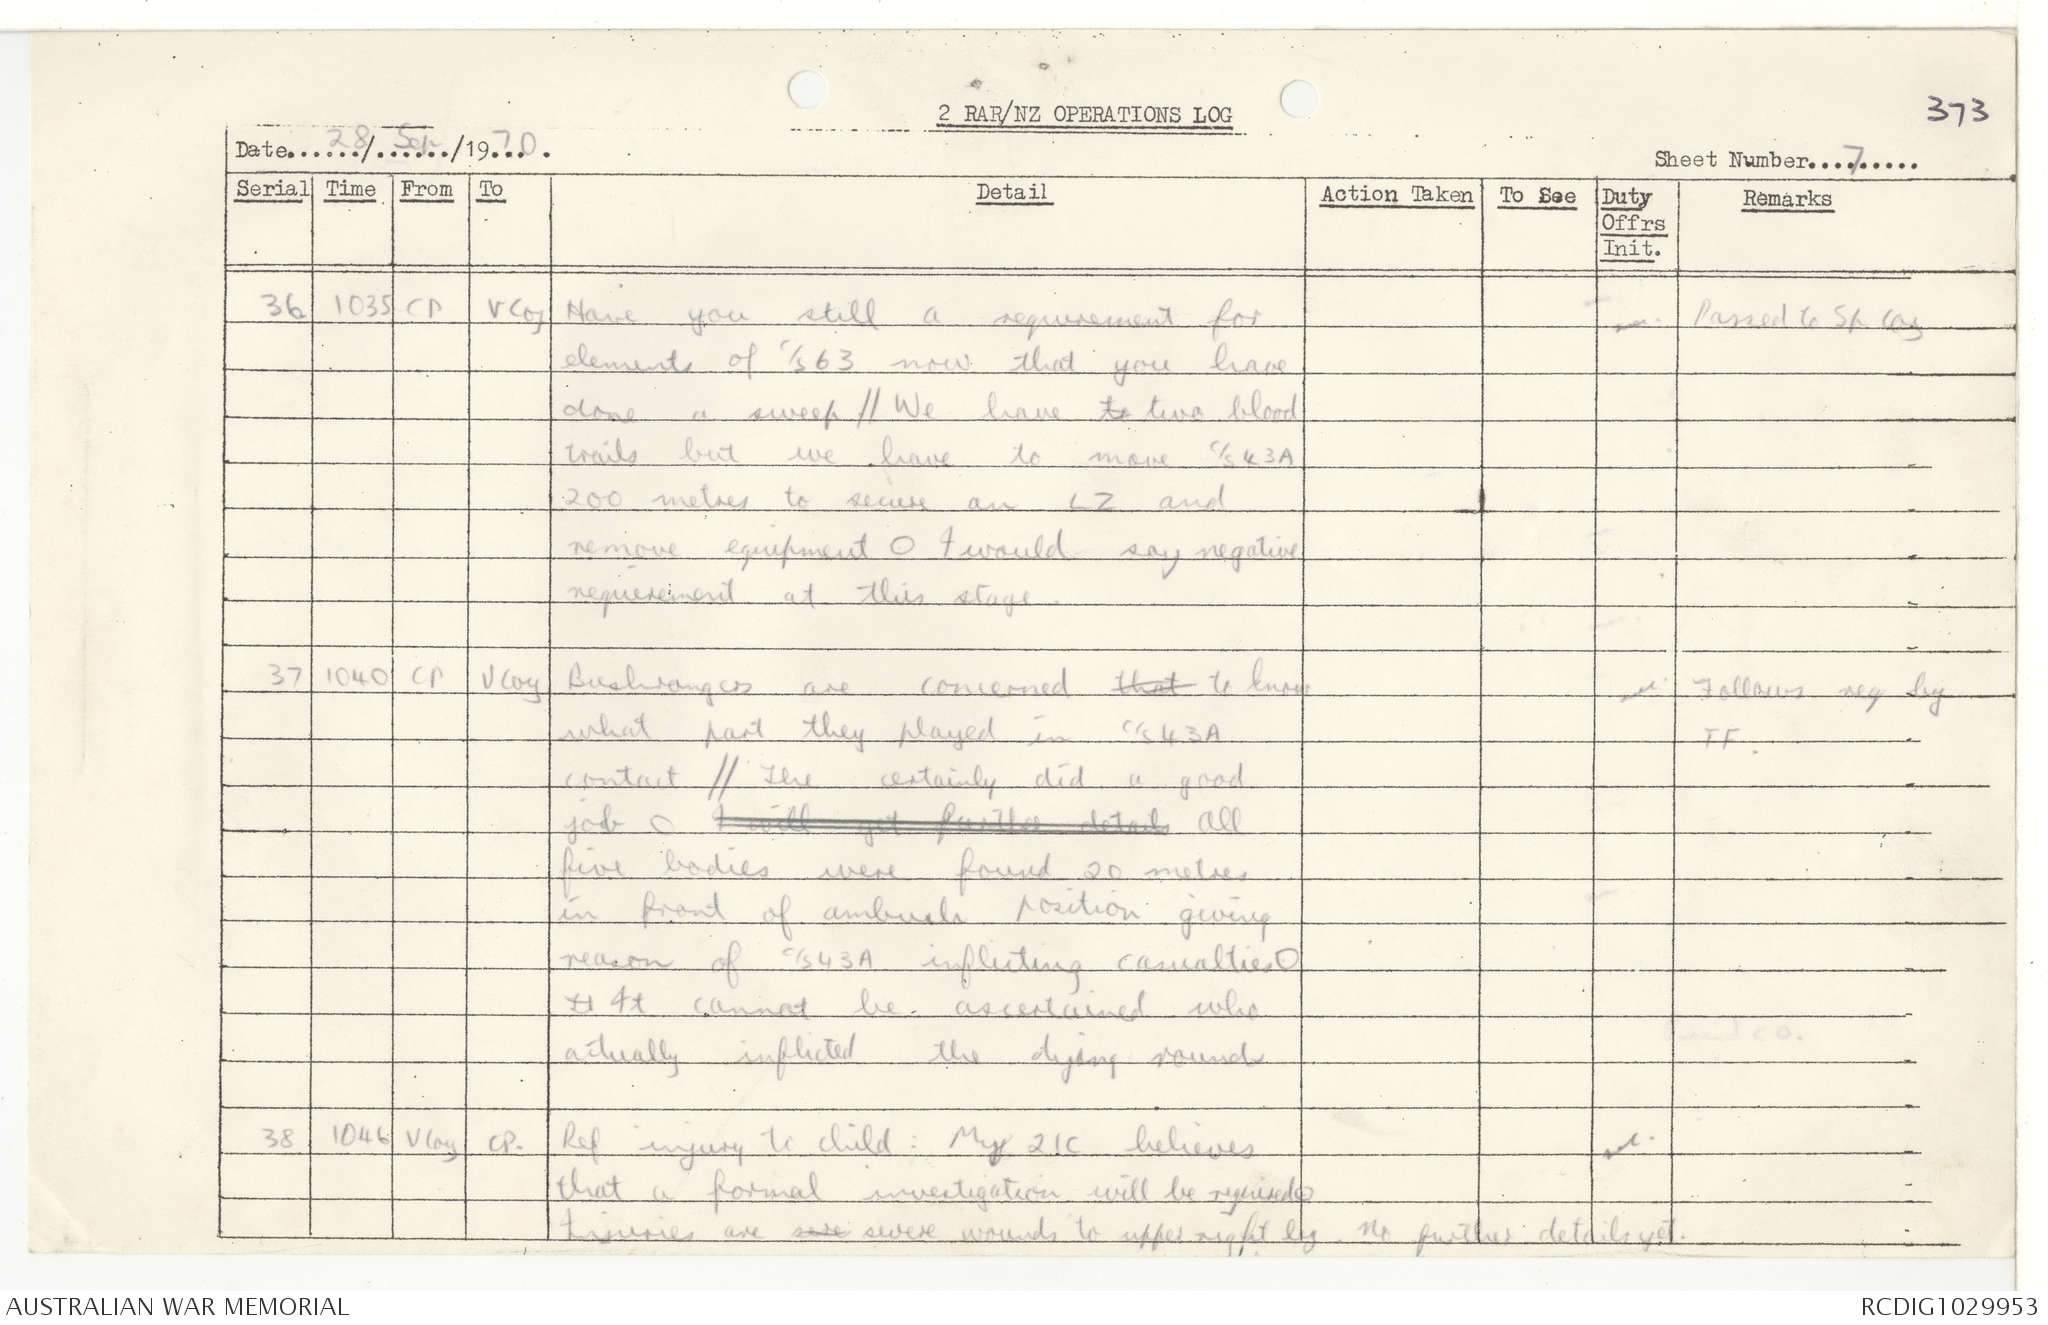 373
2 RAR/NZ OPERATIONS LOG
Date...28.../...Sep.../1970.
Sheet Number....7......
Serial Time From To Detail Action Taken To See Duty Offrs Init. Remarks
36 1035 CP V Coy Have you still a requirement for Passed to Sp Coy
elements of c/s 63 now that you have
done a sweep // We have to two blood
trails but we have to move c/s 43A
200 metres to secure an LZ and
remove equipment O I would say negative
requirement at this stage.
37 1040 CP V Coy Bushrangers are concerned that to know Follows neg by
what part they played in c/s 43A TF.
contact // The certainly did a good
job O I will get further details All
five bodies were found 20 metres
in front of ambush position giving
reason of c/s 43A inflicting casualties O
It It cannot be ascertained who
actually inflicted the dying rounds
38 1046 V Coy CP. Ref injury to child: My 2IC believes
that a formal investigation will be required O
Injuries are severe wounds to upper right leg. No further details yet.
AUSTRALIAN WAR MEMORIAL
RCDIG1029953